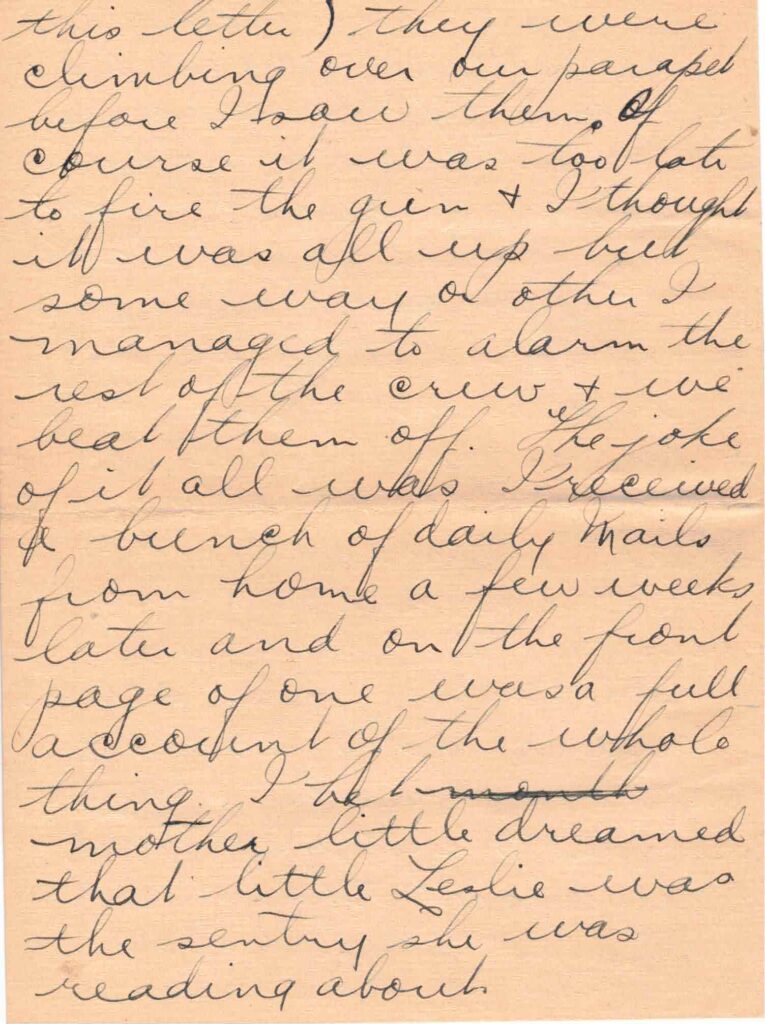 this letter) they were
climbing over our parapet
before I saw them. Of
course it was too late
to fire the gun + I thought
it was all up but
some way or other I
managed to alarm the
rest of the crew + we
beat them off. The joke
of it all was I received
a bunch of daily Mails
from home a few weeks
later and on the front
page of one was a full
account of the whole
thing. I bet month
mother little dreamed
that little Leslie was
the sentry she was
reading about.